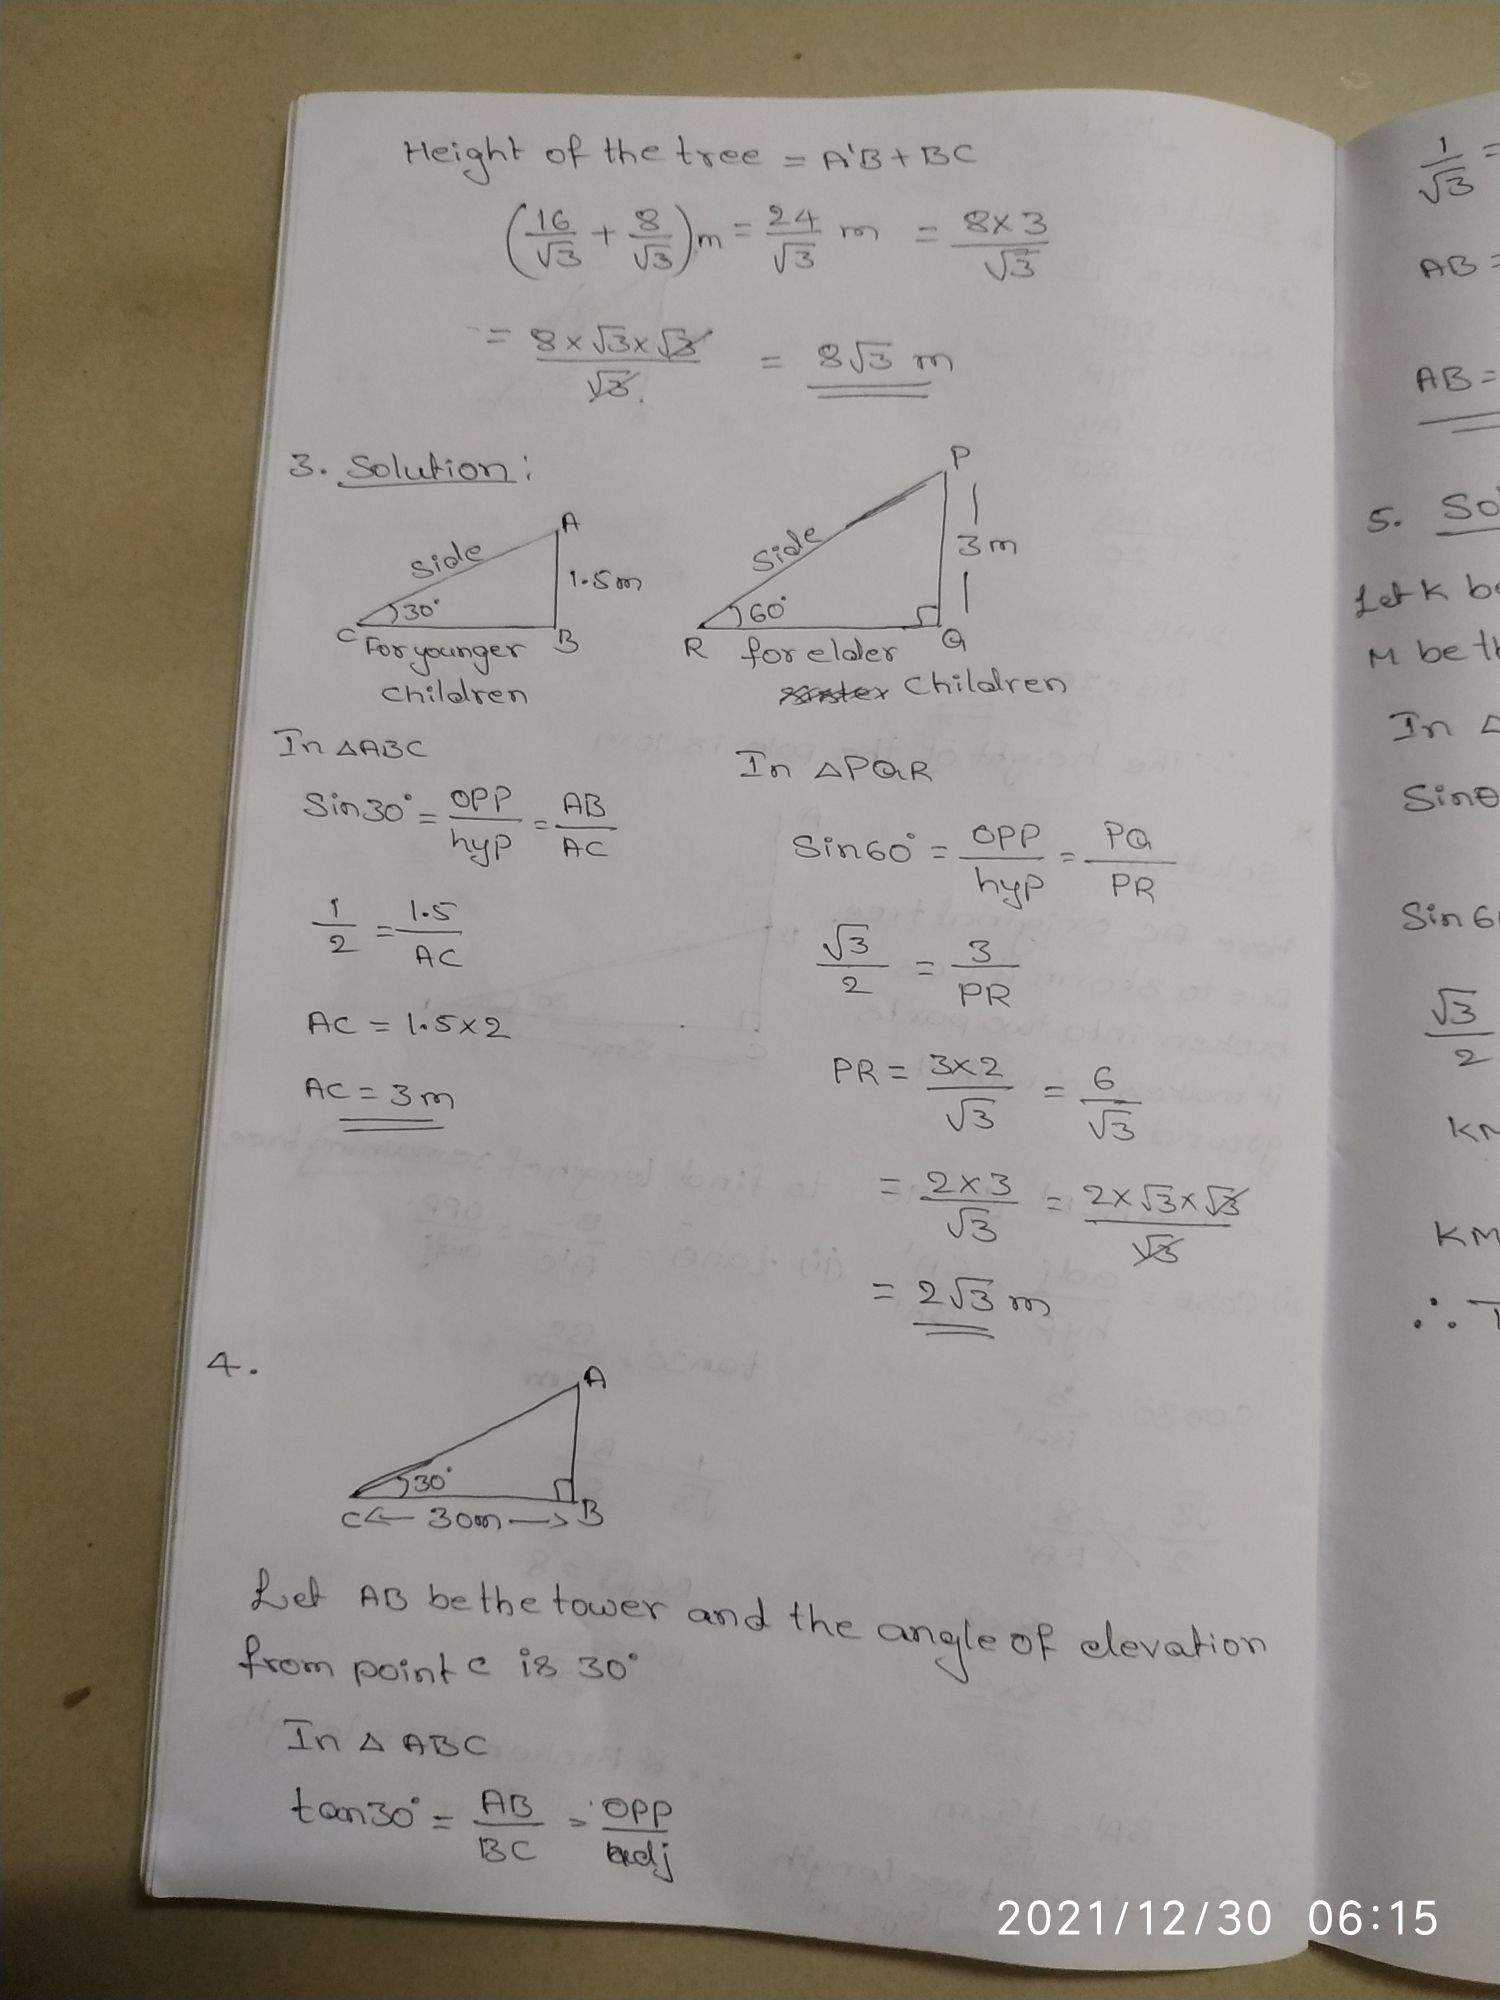 Height of the tree = A'B + BC
(16/√3 + 8/√3)m = 24/√3 m = 8×3/√3
= 8×√3×√3/√3 = 8√3 m
3. Solution:
A
Side
1.5m
30°
C
B
For younger
children
P
Side
3m
60°
R
Q
for elder
children
In △ABC
Sin30° = OPP/hyp = AB/AC
1/2 = 1.5/AC
AC = 1.5×2
AC = 3m
In △PQR
Sin60° = OPP/hyp = PQ/PR
√3/2 = 3/PR
PR = 3×2/√3 = 6/√3
= 2×3/√3 = 2×√3×√3/√3
= 2√3 m
4.
A
30°
C ← 30m → B
Let AB be the tower and the angle of elevation
from point C is 30°
In △ ABC
tan30° = AB/BC = OPP/adj
1/√3 =
AB =
AB =
5. So
Let K be
M be th
In △
Sinθ
Sin6
√3/2
KM
KM
∴ T
2021/12/30 06:15